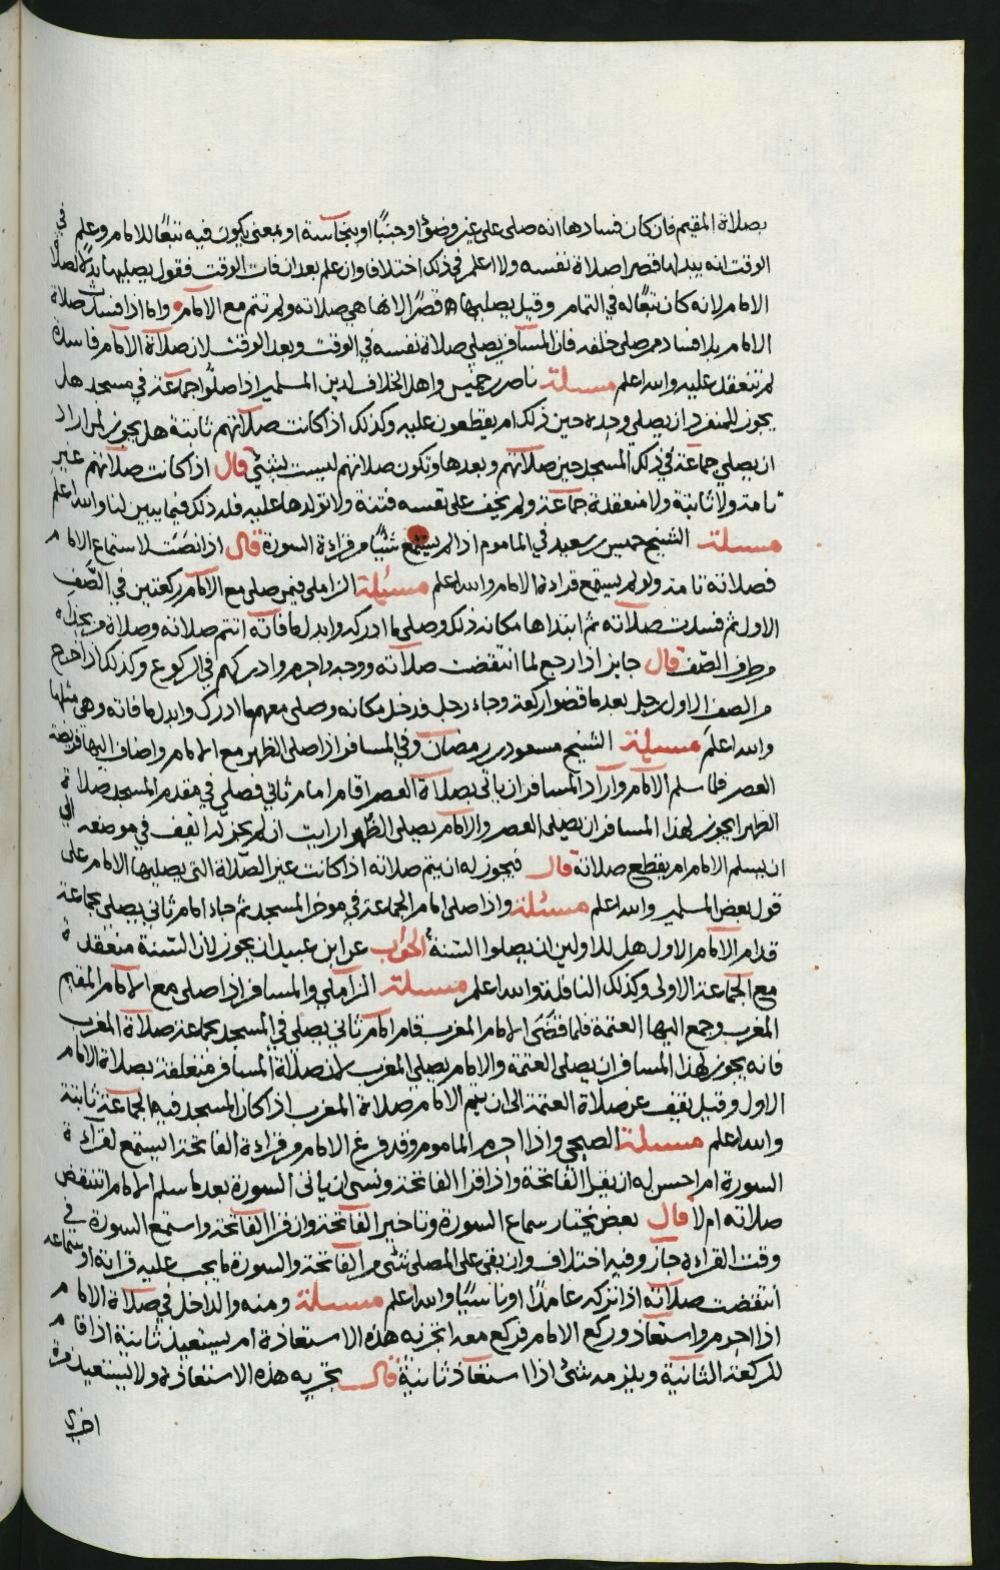 بصلاة المقيم فان كان فسادها انه صلى على غير وضؤ او جنبًا او بنجاسة او بمعنى يكون فيه تبعًا للامام وعلم في
الوقت انه يبدلها قصرا صلاة نفسه ولا اعلم في ذلك اختلافا وان علم بعد ان فات الوقت فقول يصليها بدلًا لصلاة
الامام لانه كان تبعًا له في التمام وقيل يصليها قصرًا لانها هي صلاته ولم تتم مع الامام واما اذا فسدت صلاة
الامام بلا فساد من صلى خلفه فان المسافر يصلي صلاة نفسه في الوقت وبعد الوقت لان صلاة الامام فاسدة
لم تنعقد عليه والله اعلم مسئلة ناصر بن خميس واهل الخلاف لدين المسلمين اذا صلوا جماعة في مسجد هل
يجوز للمنفرد ان يصلي وحده حين ذلك ام يقطعون عليه وكذلك اذا كانت صلاتهم ثابتة هل يجوز لمن اراد
ان يصلي جماعة في ذلك المسجد حين صلاتهم وبعدها وتكون صلاتهم ليست بشئ قال اذا كانت صلاتهم غير
تامة ولا ثابتة ولا منعقدة جماعة ولم يخف على نفسه فتنة ولا تولدها عليه فله ذلك فيما يبين لنا والله اعلم
مسئلة الشيخ خميس بن سعيد في الماموم اذا لم يستمع شيئًا من قراءة السورة قال اذا نصت لاستماع الامام
فصلاته تامة ولو لم يستمع قراءة الامام والله اعلم مسئلة الزاملي فيمن صلى مع الامام ركعتين في الصف
الاول ثم فسدت صلاته ثم ابتداها مكانه ذلك وصلى ما ادركه وابدل ما فاته اتتم صلاته وصلاة من بحذاه
من طرف الصف قال جايز اذا رجع لما انتقضت صلاته ووجه واحرم وادركهم في الركوع وكذلك اذا خرج
من الصف الاول رجل بعد ما قضوا ركعة وجاء رجل فدخل مكانه وصلى معهم ما ادرك وابدل ما فاته وهي مثلها
والله اعلم مسئلة الشيخ مسعود بن رمضان وفي المسافر اذا صلى الظهر مع الامام واضاف اليها فريضة
العصر فلما سلم الامام واراد المسافر ان ياتي بصلاة العصر اقام امام ثاني فصلى في مقدم المسجد صلاة
الظهر ايجوز لهذا المسافر ان يصلي العصر والامام يصلي الظهر ارايت ان لم يجز له ايقف في موضعه الى
ان يسلم الامام ام يقطع صلاته قال فيجوز له ان يتم صلاته اذا كانت غير الصلاة التي يصليها الامام على
قول بعض المسلمين والله اعلم مسئلة واذا صلى امام الجماعة في موخر المسجد ثم جاء امام ثاني يصلي بجماعة
قدام الامام الاول هل للاولين ان يصلوا السنة الجواب عن ابن عبيدان يجوز لان السنة منعقدة
مع الجماعة الاولى وكذلك النافلة والله اعلم مسئلة الزاملي والمسافر اذا صلى مع الامام المقيم
المغرب وجمع اليها العتمة فلما قضى الامام المغرب قام امام ثاني يصلي في المسجد بجماعة صلاة المغرب
فانه يجوز لهذا المسافر ان يصلي العتمة والامام يصلي المغرب لان صلاة المسافر متعلقة بصلاة الامام
الاول وقيل يقف عن صلاة العتمة الى ان يتم الامام صلاة المغرب اذا كان المسجد فيه الجماعة ثابتة
والله اعلم مسئلة الصبحي واذا احرم الماموم وقد فرغ الامام من قراءة الفاتحة ايستمع لقراءة
السورة ام احسن له ان يقرا الفاتحة واذا قرا الفاتحة ونسى ان ياتي السورة بعد ما سلم الامام اتنتقض
صلاته ام لا قال بعض يختار سماع السورة وتاخير الفاتحة وان قرا الفاتحة واستمع السورة في
وقت القراءة جاز وفيه اختلاف وان بقى على المصلي شئ من الفاتحة والسورة ما يجب عليه قراته او سماعه
انتقضت صلاته اذا تركه عامدًا او ناسيًا والله اعلم مسئلة ومنه والداخل في صلاة الامام
اذا احرم واستعاذ وركع الامام فركع معه اتجزيه هذه الاستعاذة ام يستعيذ ثانية اذا قام
للركعة الثانية ويلزمه شئ اذا استعاذ ثانية قال تجزيه هذه الاستعاذة ولا يستعيذ مرة
اخرى